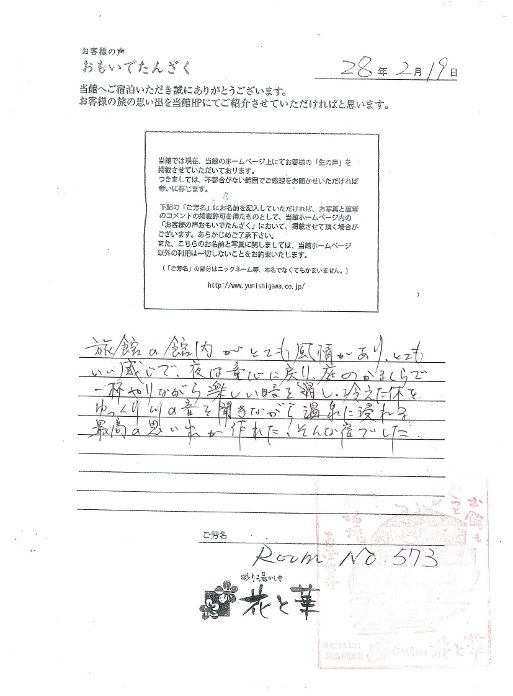 お客様の声
おもいでたんざく
28年2月19日
当館へご宿泊いただき誠にありがとうございます。
お客様の旅の思い出を当館HPにてご紹介させていただければと思います。
当館では現在、当館のホームページ上にてお客様の「生の声」を
掲載させていただいております。
つきましては、不都合がない範囲でご感想をお聞かせいただければ
幸いに存じます。
下記の「ご芳名」にお名前を記入していただければ、お写真と直筆
のコメントの掲載許可を得たものとして、当館ホームページ内の
「お客様の声おもいでたんざく」において、掲載させて頂く場合が
ございます。あらかじめご了承下さい。
また、こちらのお名前と写真に関しましては、当館ホームページ
以外の利用は一切しないことをお約束いたします。
（「ご芳名」の部分はニックネーム等、本名でなくてもかまいません。）
http://www.yunishigawa.co.jp/
旅館の館内がとても風情があり、とても
いい感じで、夜は童心に戻り、庭のかまくらで
一杯やりながら楽しい時を過し、冷えた体を
ゆっくり川の音を聞きながら温泉に浸れる
最高の思い出が作れた、そんな宿でした。
ご芳名
Room No. 573
花と華